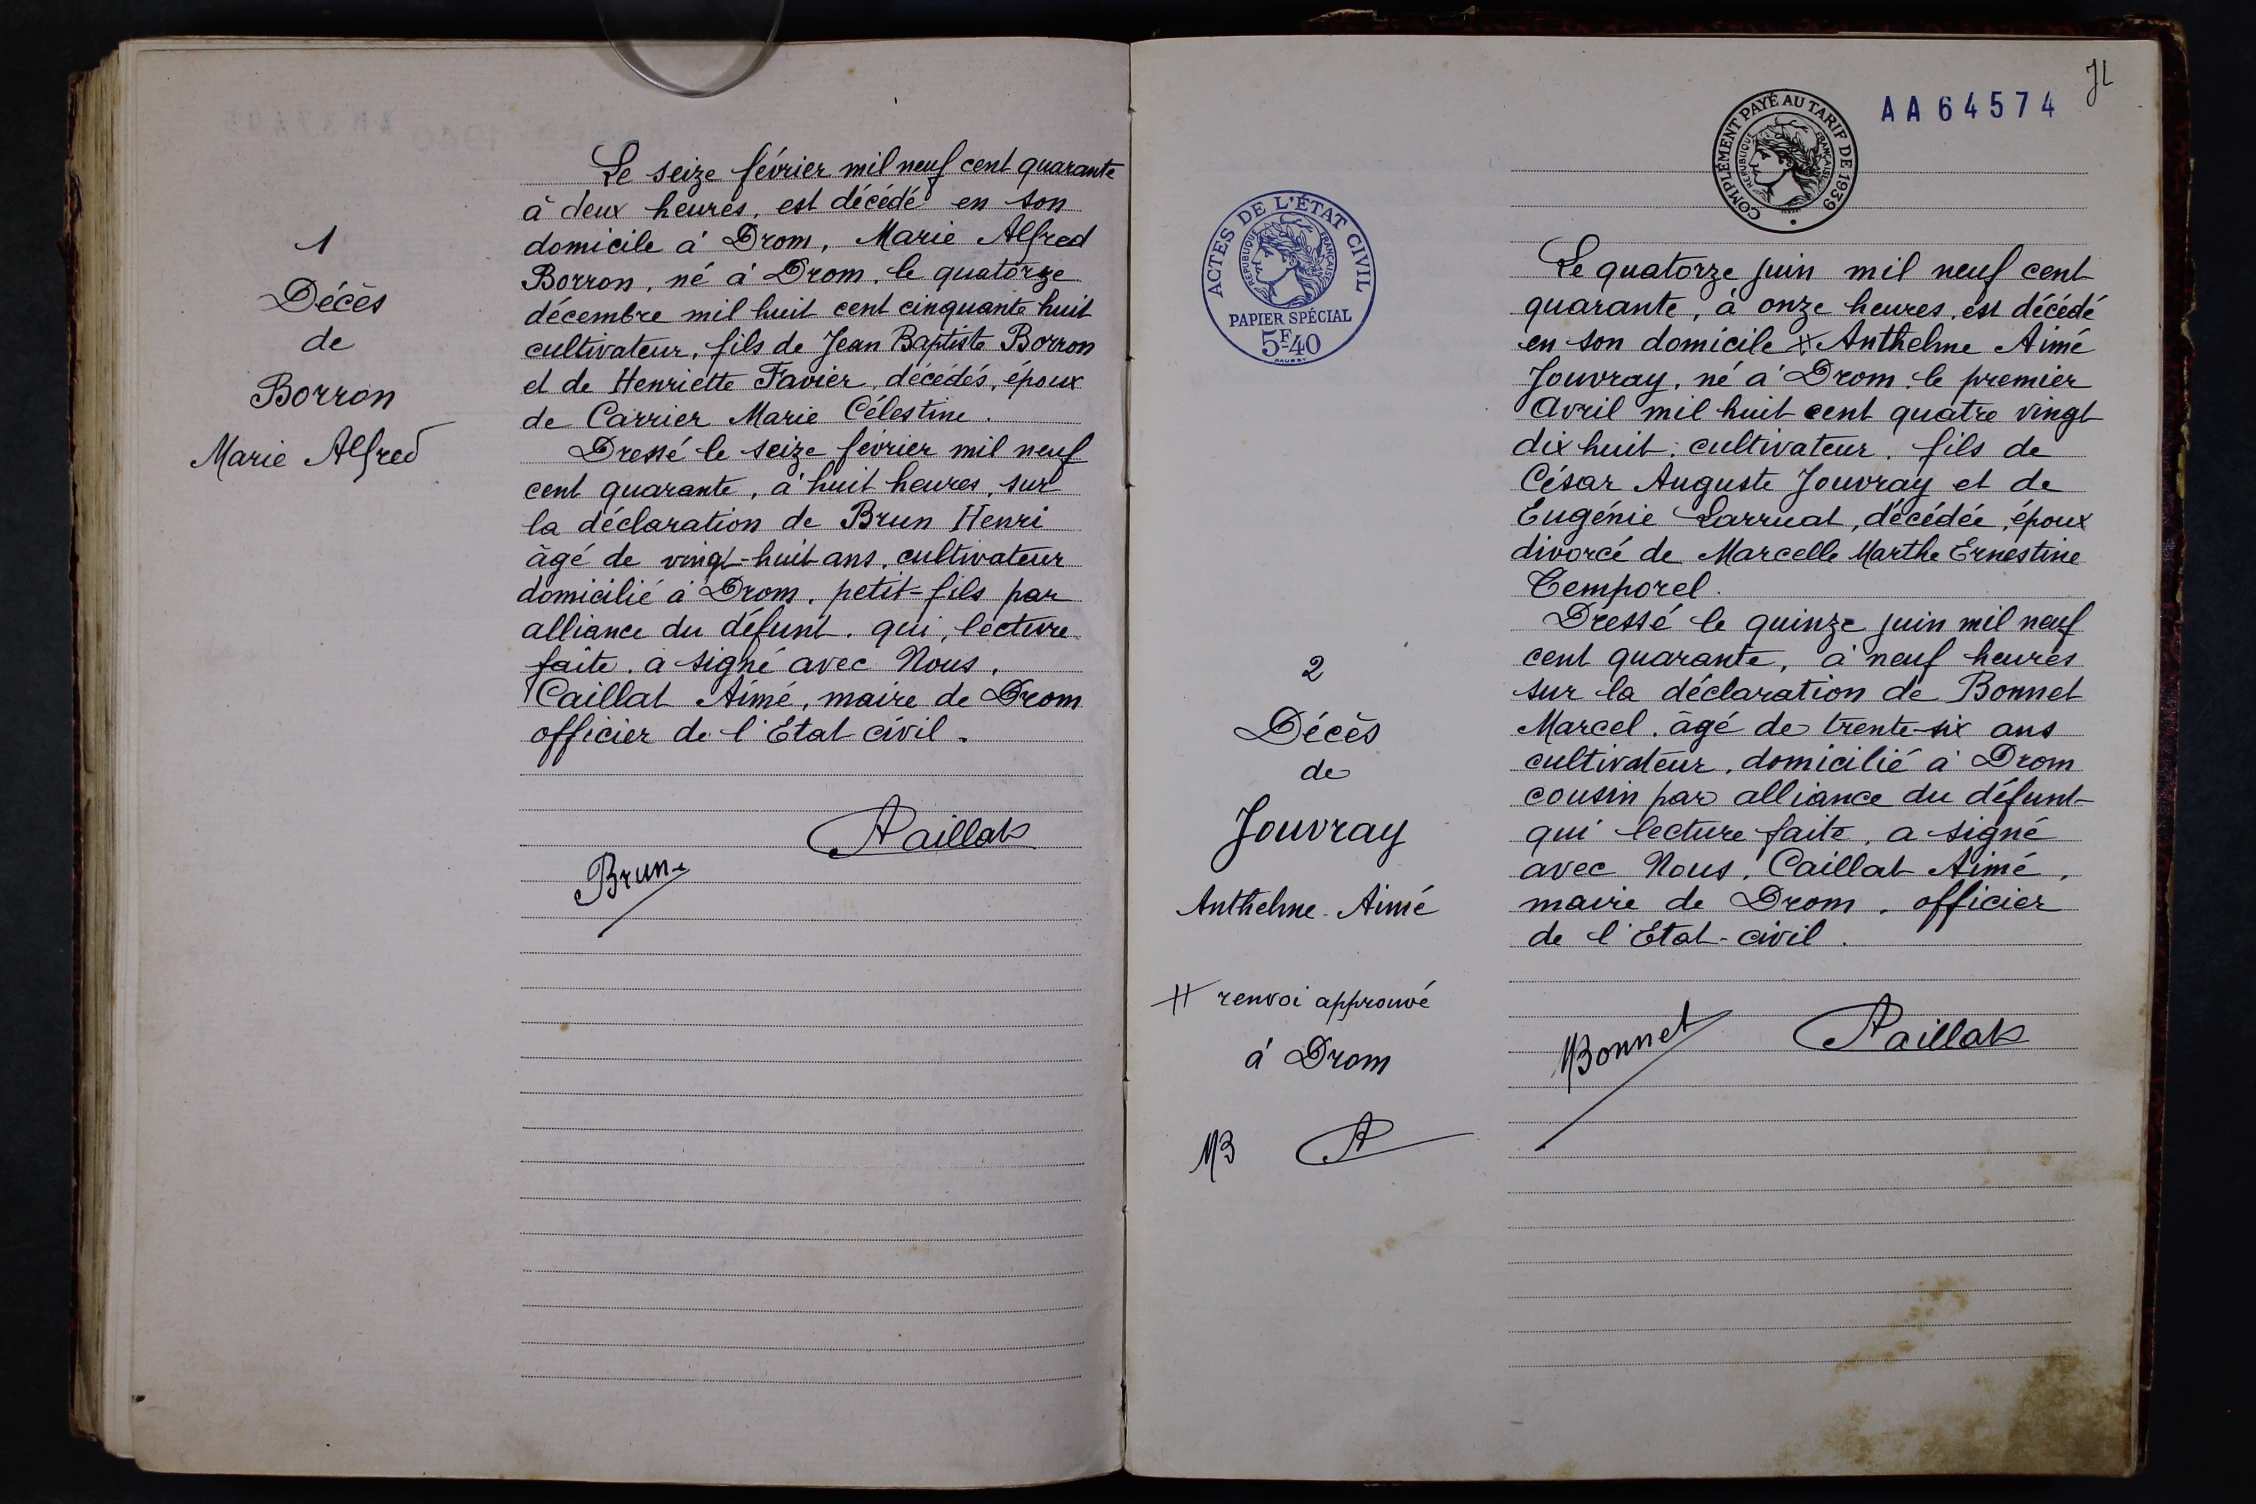 1
Décès
de
Borron
Marie Alfred
Le seize février mil neuf cent quarante
à deux heures, est décédé en son
domicile à Drom, Marie Alfred
Borron, né à Drom, le quatorze
décembre mil huit cent cinquante huit
cultivateur, fils de Jean Baptiste Borron
et de Henriette Favier, décédés, époux
de Carrier Marie Célestine.
Dressé le seize février mil neuf
cent quarante, à huit heures, sur
la déclaration de Brun Henri
âgé de vingt-huit ans, cultivateur
domicilié à Drom, petit-fils par
alliance du défunt, qui, lecture
faite, a signé avec Nous,
Caillat Aimé, maire de Drom
officier de l'Etat civil.
ACaillat
Brun
AA64574
COMPLÉMENT PAYÉ AU TARIF DE 1939
RÉPUBLIQUE FRANÇAISE
ACTES DE L'ÉTAT CIVIL
RÉPUBLIQUE FRANÇAISE
PAPIER SPÉCIAL
5F40
2
Décès
de
Jouvray
Anthelme Aimé
# renvoi approuvé
à Drom
MB
Le quatorze juin mil neuf cent
quarante, à onze heures, est décédé
en son domicile # Anthelme Aimé
Jouvray, né à Drom, le premier
Avril mil huit cent quatre vingt
dix huit, cultivateur, fils de
César Auguste Jouvray et de
Eugénie Larruat, décédée, époux
divorcé de Marcelle Marthe Ernestine
Temporel.
Dressé le quinze juin mil neuf
cent quarante, à neuf heures
sur la déclaration de Bonnet
Marcel, âgé de trente-six ans
cultivateur, domicilié à Drom
cousin par alliance du défunt
qui lecture faite, a signé
avec Nous, Caillat Aimé,
maire de Drom, officier
de l'Etat-civil.
MBonnet
ACaillat